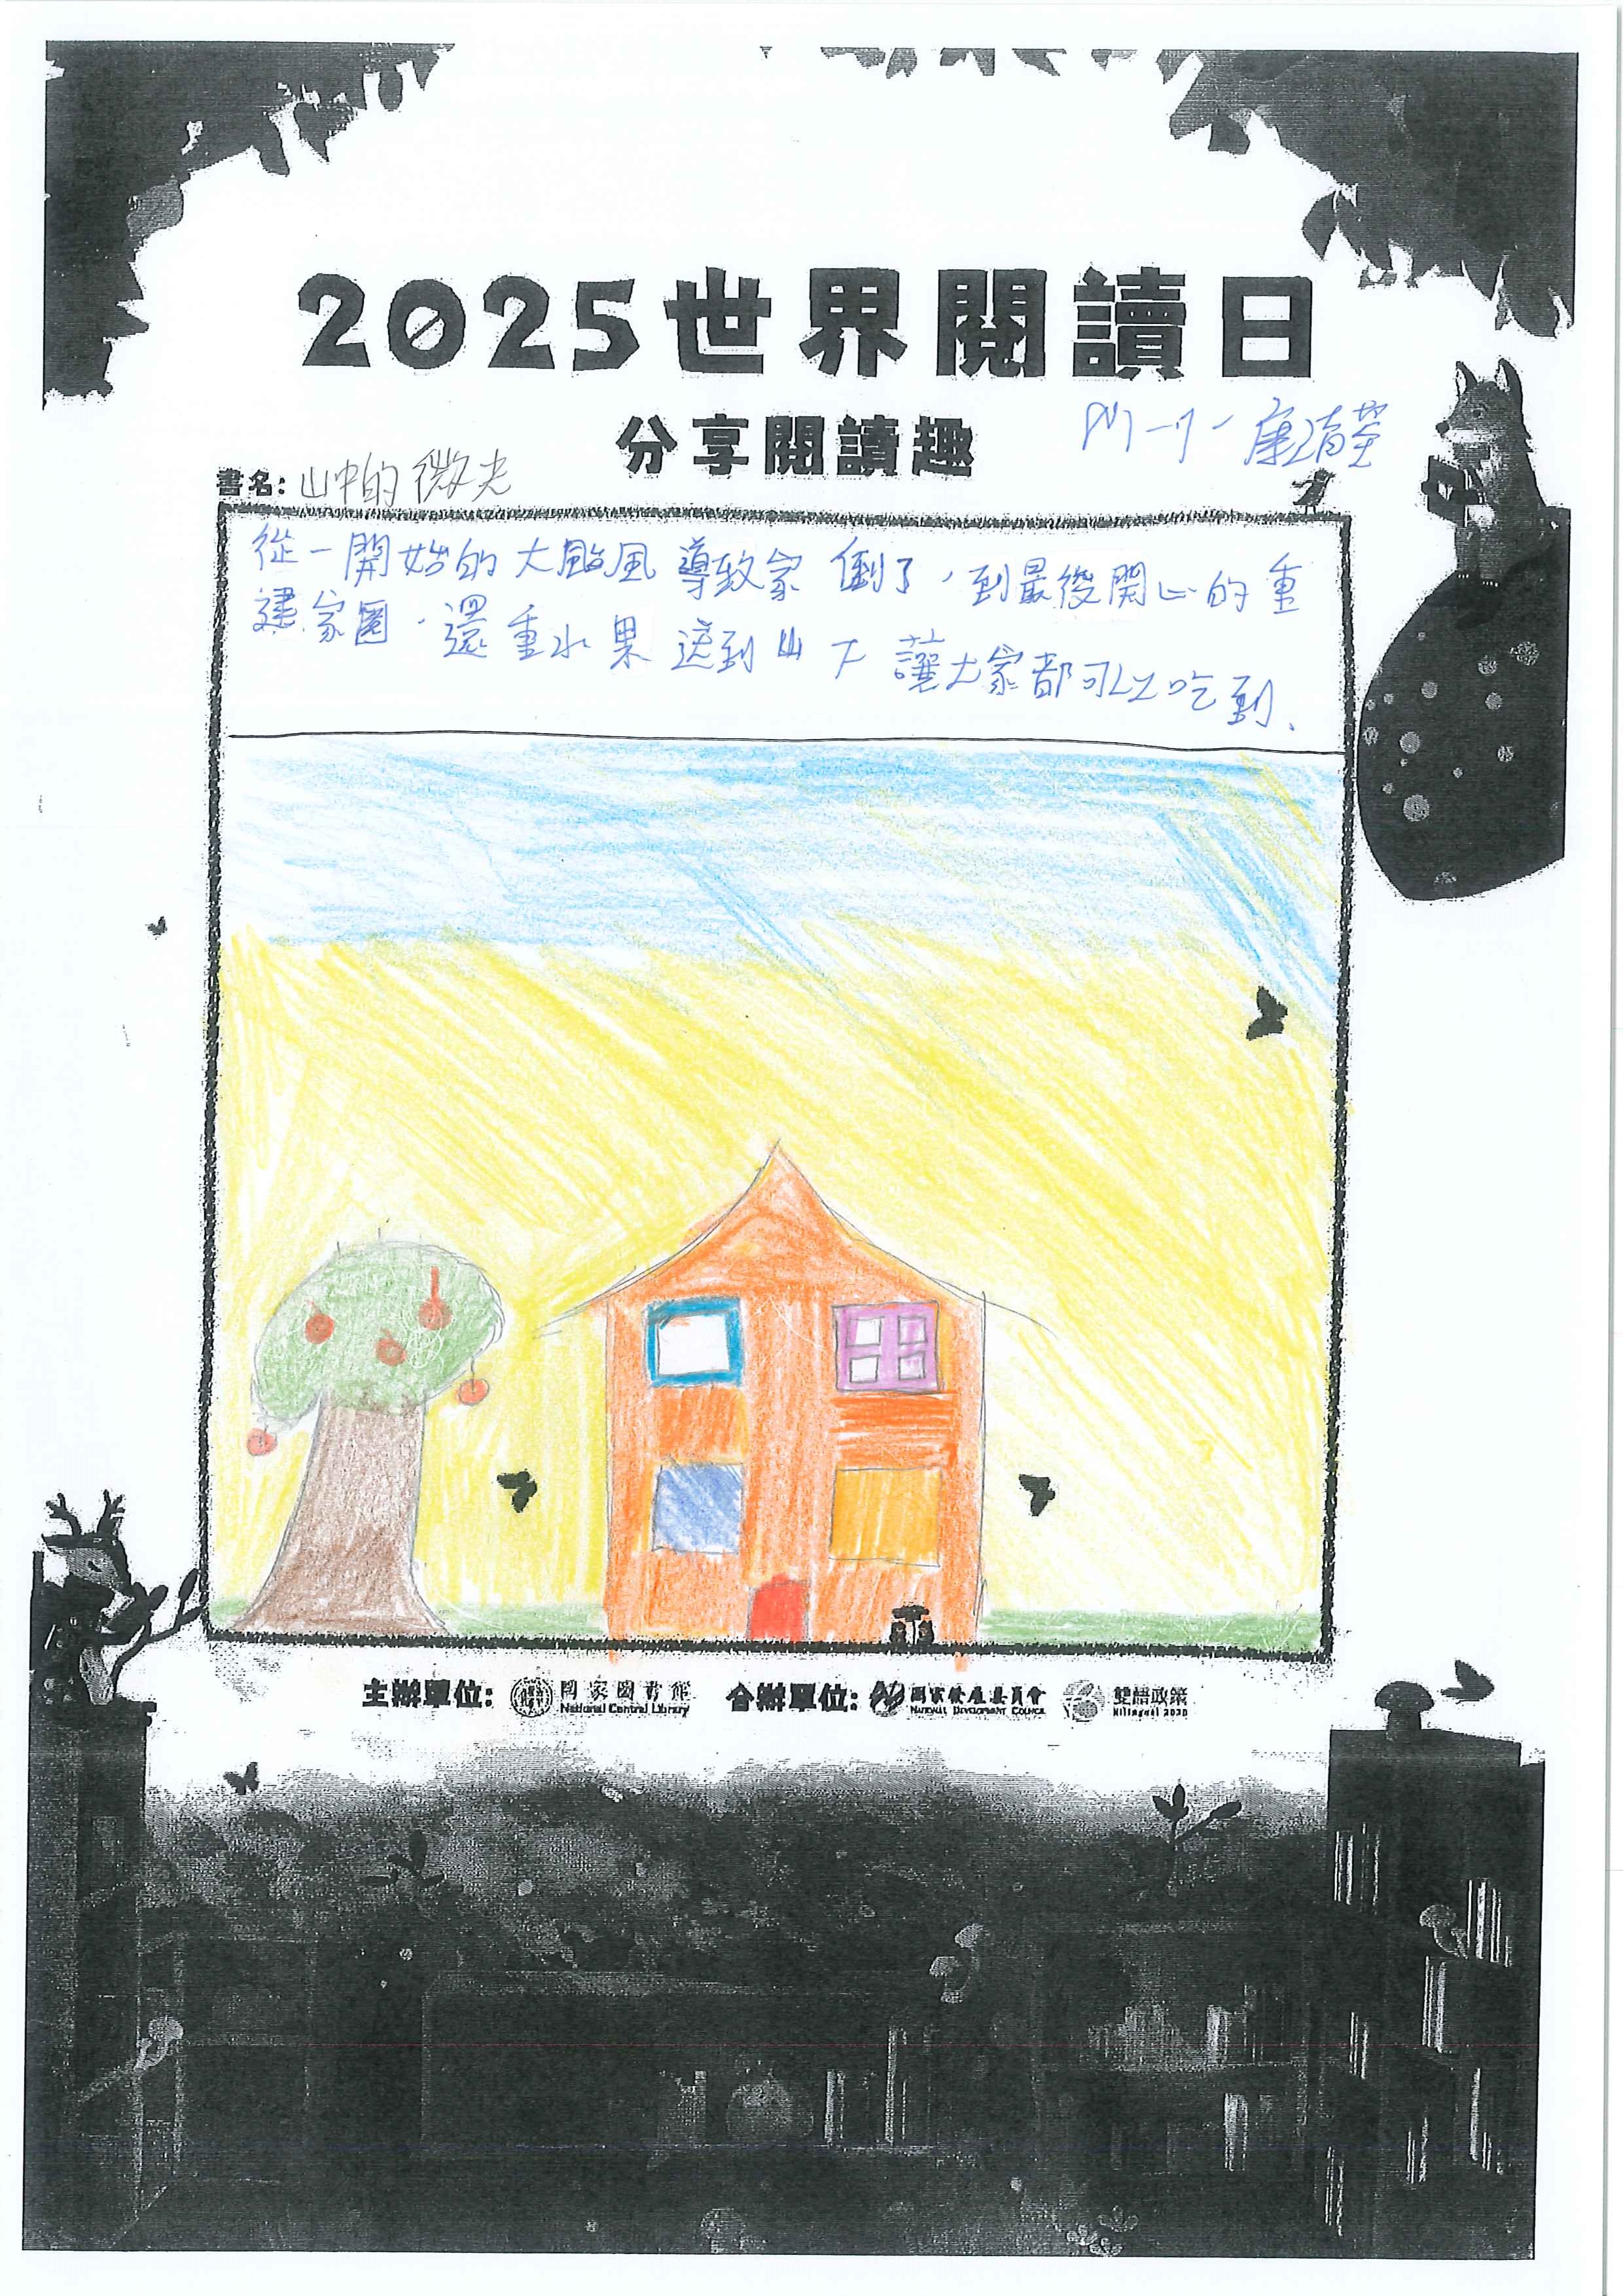 2025世界閱讀日
分享閱讀趣
康清
書名：山中的微光
從一開始的大颱風導致家倒了，到最後開心的重
建家園，還重水果送到山下讓大家都可以吃到、
主辦單位: 國家圖書館 National Central Library 合辦單位: 國家發展委員會 NATIONAL DEVELOPMENT COUNCIL 雙語政策 Bilingual 2030